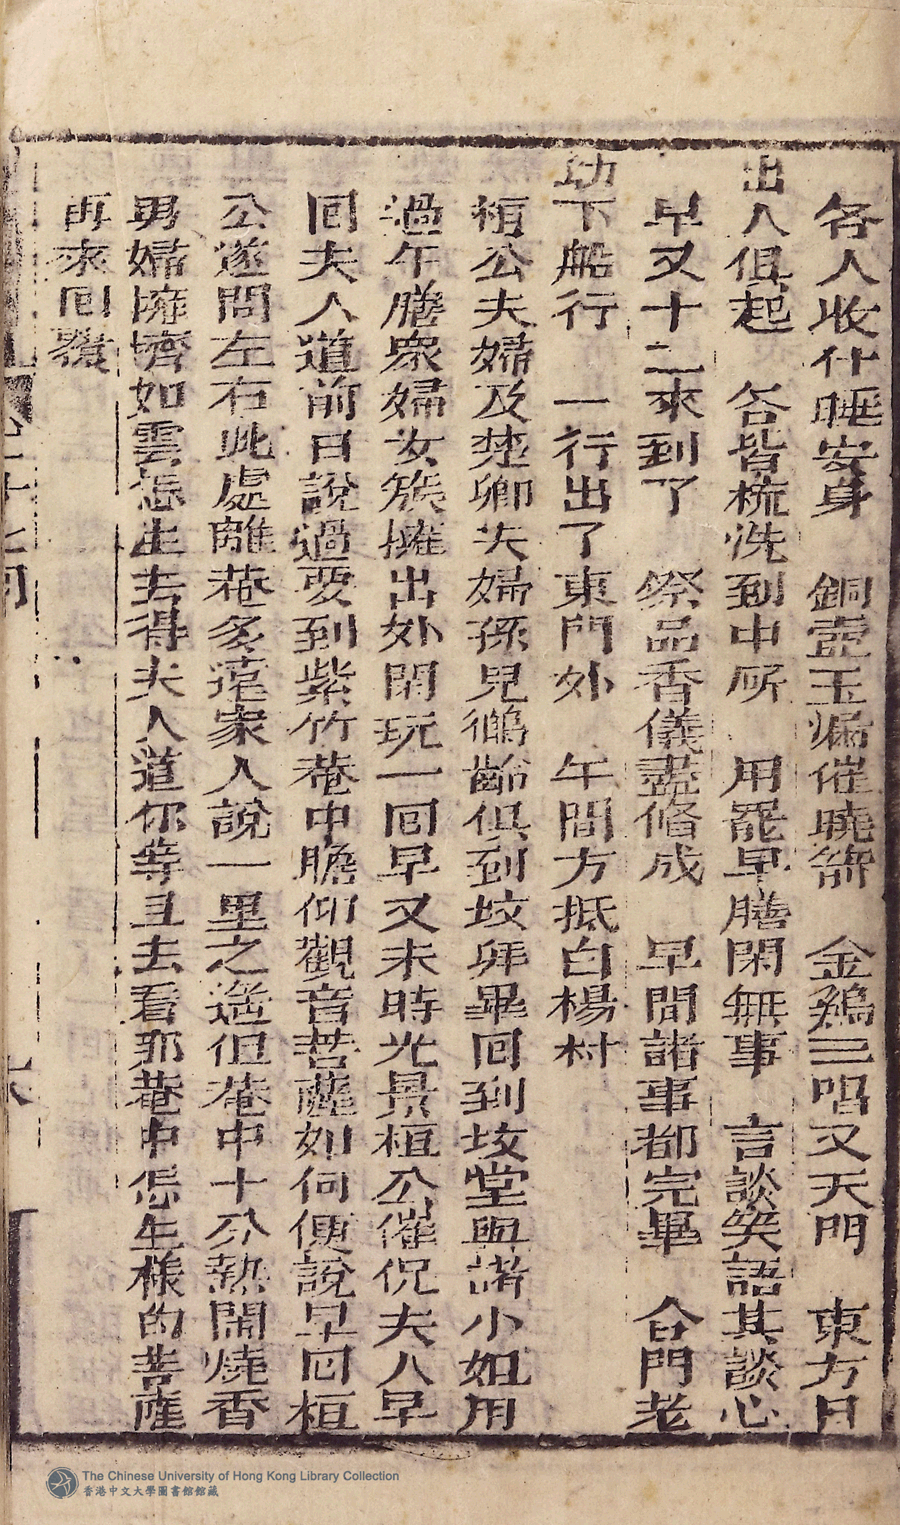 各人收什睡安身　銅壺玉漏催曉箭　金鷄三唱又天門　東方日
出人俱起　各皆梳洗到中所　用罷早膳閑無事　言談笑語其談心
早又十二來到了　祭品香儀盡俻成　早間諸事都完畢　合門老
幼下船行　一行出了東門外　午間方抵白楊村
桓公夫婦及楚卿夫婦孫兒鶴齡俱到坟拜畢回到坟堂與諸小姐用
過午膳眾婦女簇擁出外閑玩一回早又未時光景桓公催促夫人早
回夫人道前日說過要到紫竹菴中瞻仰觀音菩薩如何便說早回桓
公遂問左右此處離菴多遠家人說一里之遙但菴中十分熱鬧燒香
男婦擁擠如雲怎生去得夫人道你等且去看那菴中怎生樣的菩薩
再來回覆
卷二十七回
The Chinese University of Hong Kong Library Collection
香港中文大學圖書館館藏